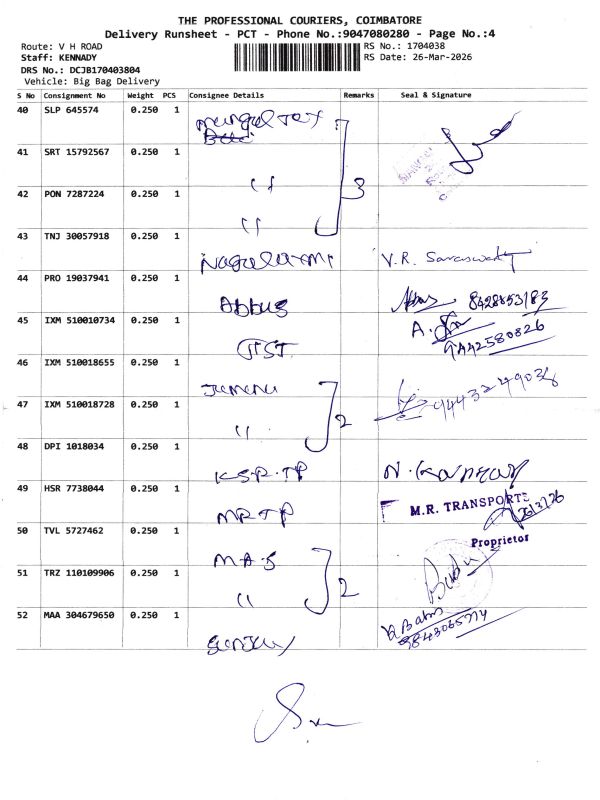 THE PROFESSIONAL COURIERS, COIMBATORE
Delivery Runsheet - PCT - Phone No.:9047080280 - Page No.:4
Route: V H ROAD RS No.: 1704038
Staff: KENNADY RS Date: 26-Mar-2026
DRS No.: DCJB170403804
Vehicle: Big Bag Delivery
S No Consignment No Weight PCS Consignee Details Remarks Seal & Signature
40 SLP 645574 0.250 1
41 SRT 15792567 0.250 1 "
3
42 PON 7287224 0.250 1 "
43 TNJ 30057918 0.250 1 V.R. Saraswathi
44 PRO 19037941 0.250 1 Abbus 8428853183
45 IXM 510010734 0.250 1 A.
9442580826
46 IXM 510018655 0.250 1
47 IXM 510018728 0.250 1 " 2
48 DPI 1018034 0.250 1 KSR-TP
49 HSR 7738044 0.250 1 MRTP M.R. TRANSPORTS
26/3/26
Proprietor
50 TVL 5727462 0.250 1 MAS
51 TRZ 110109906 0.250 1 " 2 Babu
52 MAA 304679650 0.250 1
9843065774